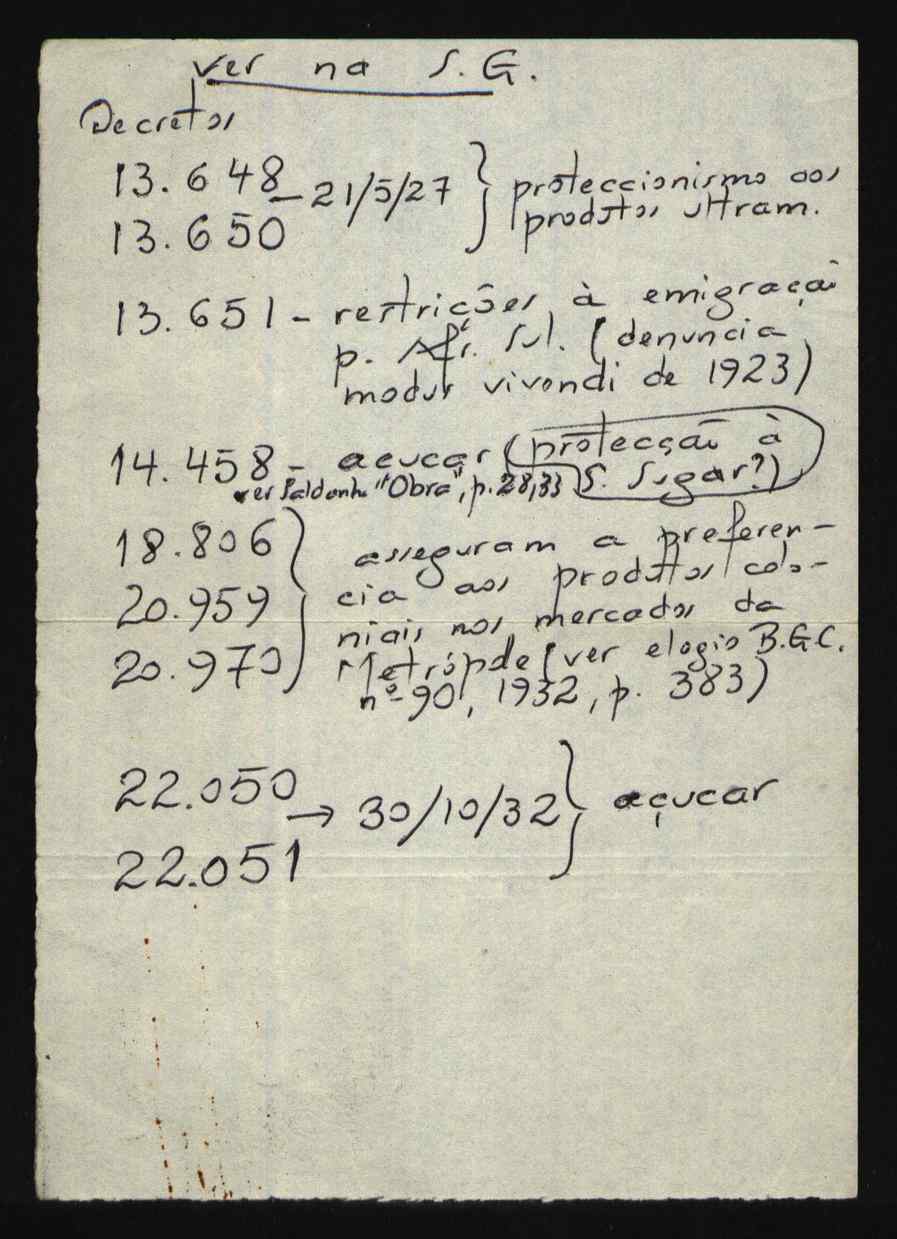 ver na S.G.
Decretos
13.648 – 21/5/27 } proteccionismo aos
13.650 produtos ultram.
13.651 – restrições à emigração
p. Áfr. Sul. (denuncia
modus vivendi de 1923)
14.458 – açucar (protecção à
S. Sugar?)
ver Saldanha "Obra", p. 28, 33
18.806 } asseguram a preferen-
20.959 cia aos produtos colo-
20.970 niais nos mercados da
Metrópole (ver elogio B.G.C.
nº 90, 1932, p. 383)
22.050 → 30/10/32 } açucar
22.051